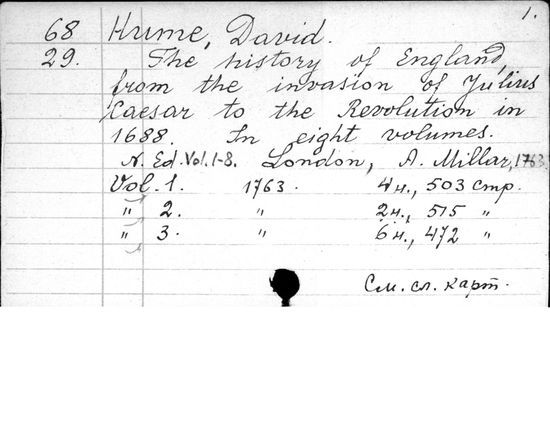 1.
68 Hume, David.
29. The history of England,
from the invasion of Julius
Caesar to the Revolution in
1688. In eight volumes.
N. Ed. Vol. 1-8. London, A. Millar, 1763.
Vol. 1. 1763. 4 н., 503 стр.
" 2. " 2 н., 515 "
" 3. " 6 н., 472 "
См. сл. карт.